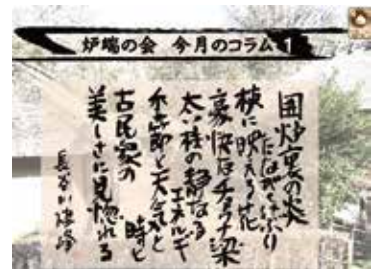 炉端の会 今月のコラム
囲炉裏の炎
たなびくけぶり
映える花
豪快なチョウナ梁
太い柱の静なる
エネルギ
季節と天気と
時と
古民家の
美しさに見惚れる
長谷川